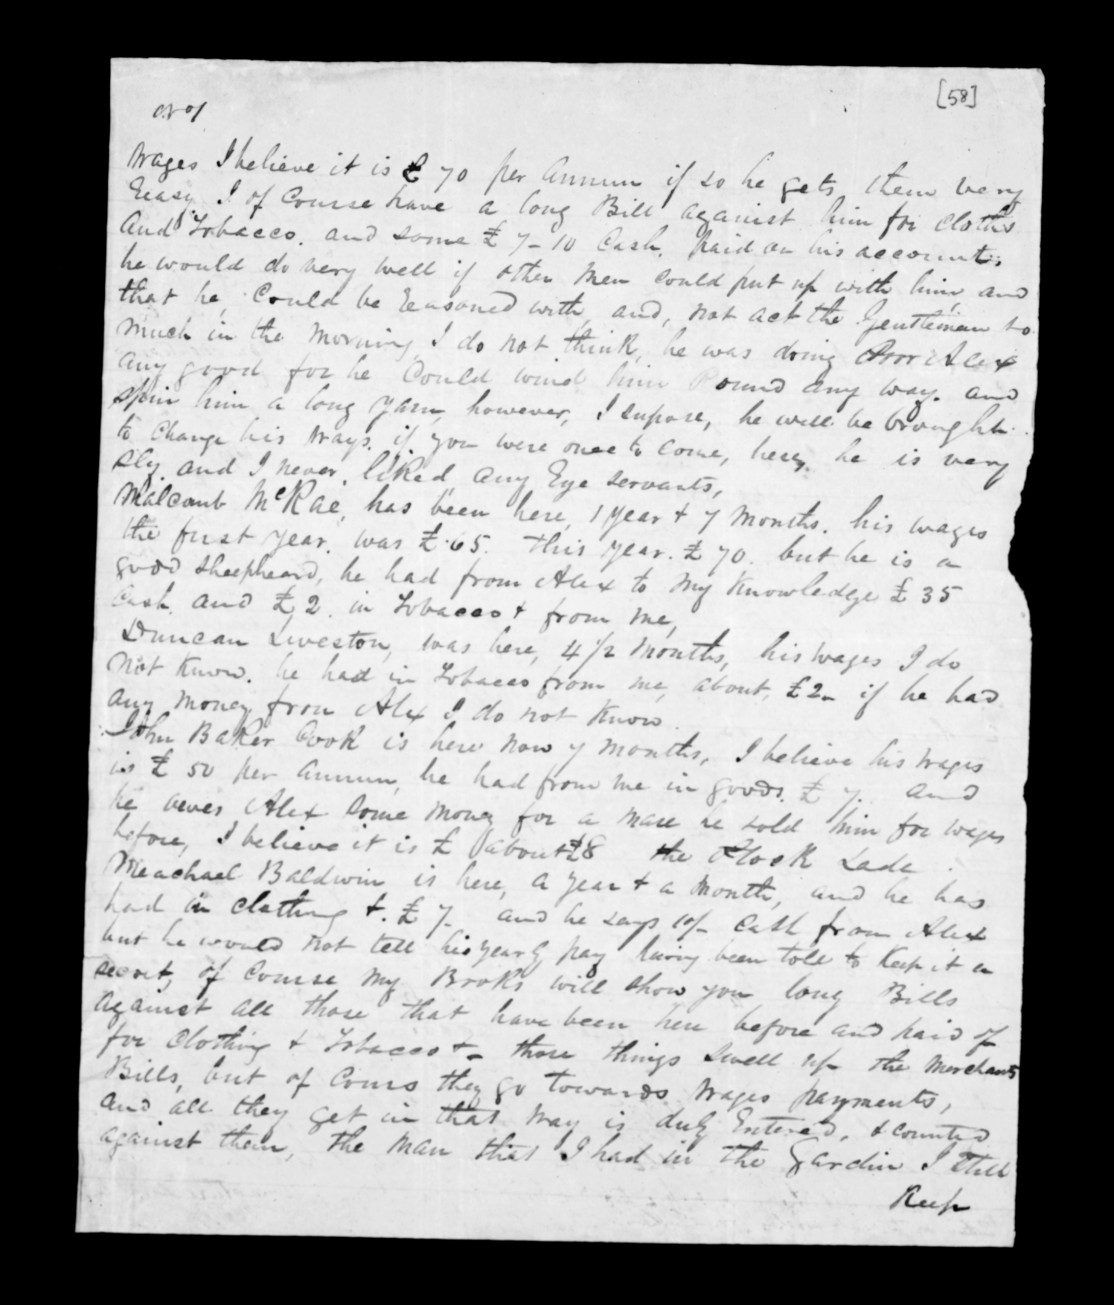 [58]
wages I believe it is £ 70 per Annum if so he gets them very
Eeasy I of Course have a long Bill against him for cloths
and Tobacco. and some £ 7-10 Cash. paid on his account.
he would do very well if other Men could put up with him, and
that he, Could be Reasoned with, and, not act the Gentleman to
much in the Morning, I do not think, he was doing Poor Alex
any good for he Could wind him Round any way. and
spin him a long yarn, however, I supose, he will be brought
to Change his ways. if you were once to come, here, he is very
sly, and I never, liked any Eye servants,
Malcomb McRae, has been here, 1 year & 7 Months. his wages
the first year. was £65. this year. £70. but he is a
good sheepheard, he had from Alex to my Knowledge £35
Cash. and £2. in Tobacco & from me,
Duncan Liveston, was here, 4 1/2 Months, his wages I do
not Know. he had in Tobacco from me, about, £2- if he had
any Money from Alex I do not Know.
John Baker Cook is here now 7 Months, I believe his wages
is £50 per Annum, he had from me in goods. £7. and
he owes Alex some Money for a Mare he sold him for wages
before, I believe it is £ about £8 the Flock Lade
Meachael Baldwin is here, a year & a Month, and he has
had in clothing &. £7- and he says 10/- Cash from Alex
but he would not tell his yearly pay having been told to Keep it a
secret, of Course my Books will show you long Bills
against all those that have been here before and paid of
for Clothing & Tobacco &- those things swell up the Merchants
Bills, but of Cours they go towards wages payments,
and all they get in that way is duly Entered, & counted
against them, the Man that I had in the Gardin I still
Keep